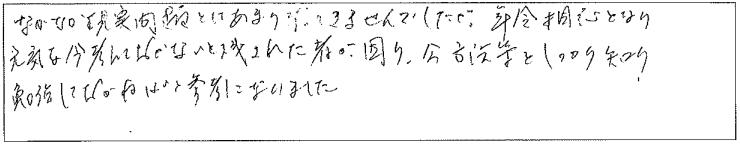 なかなか現実問題とはあまり できませんでしたが、年令相応となり
元気な今考えておかないと残された者が困り、今方法等としっかり知り
勉強しておかねばと参考になりました